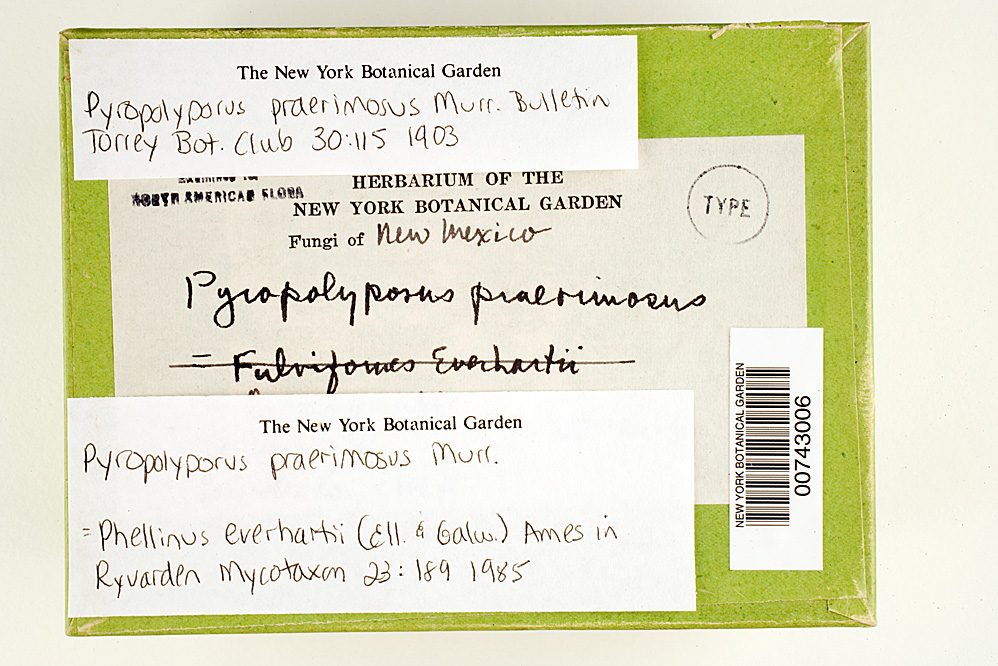 The New York Botanical Garden
Pyropolyporus praerimosus Murr. Bulletin
Torrey Bot. Club 30:115 1903
NORTH AMERICAN FLORA
HERBARIUM OF THE
NEW YORK BOTANICAL GARDEN
TYPE
Fungi of New Mexico
Pyropolyporus praerimosus
= Fulvifomes Everhartii
The New York Botanical Garden
Pyropolyporus praerimosus Murr.
= Phellinus everhartii (Ell. & Galw.) Ames in
Ryvarden Mycotaxon 23: 189 1985
NEW YORK BOTANICAL GARDEN
00743006